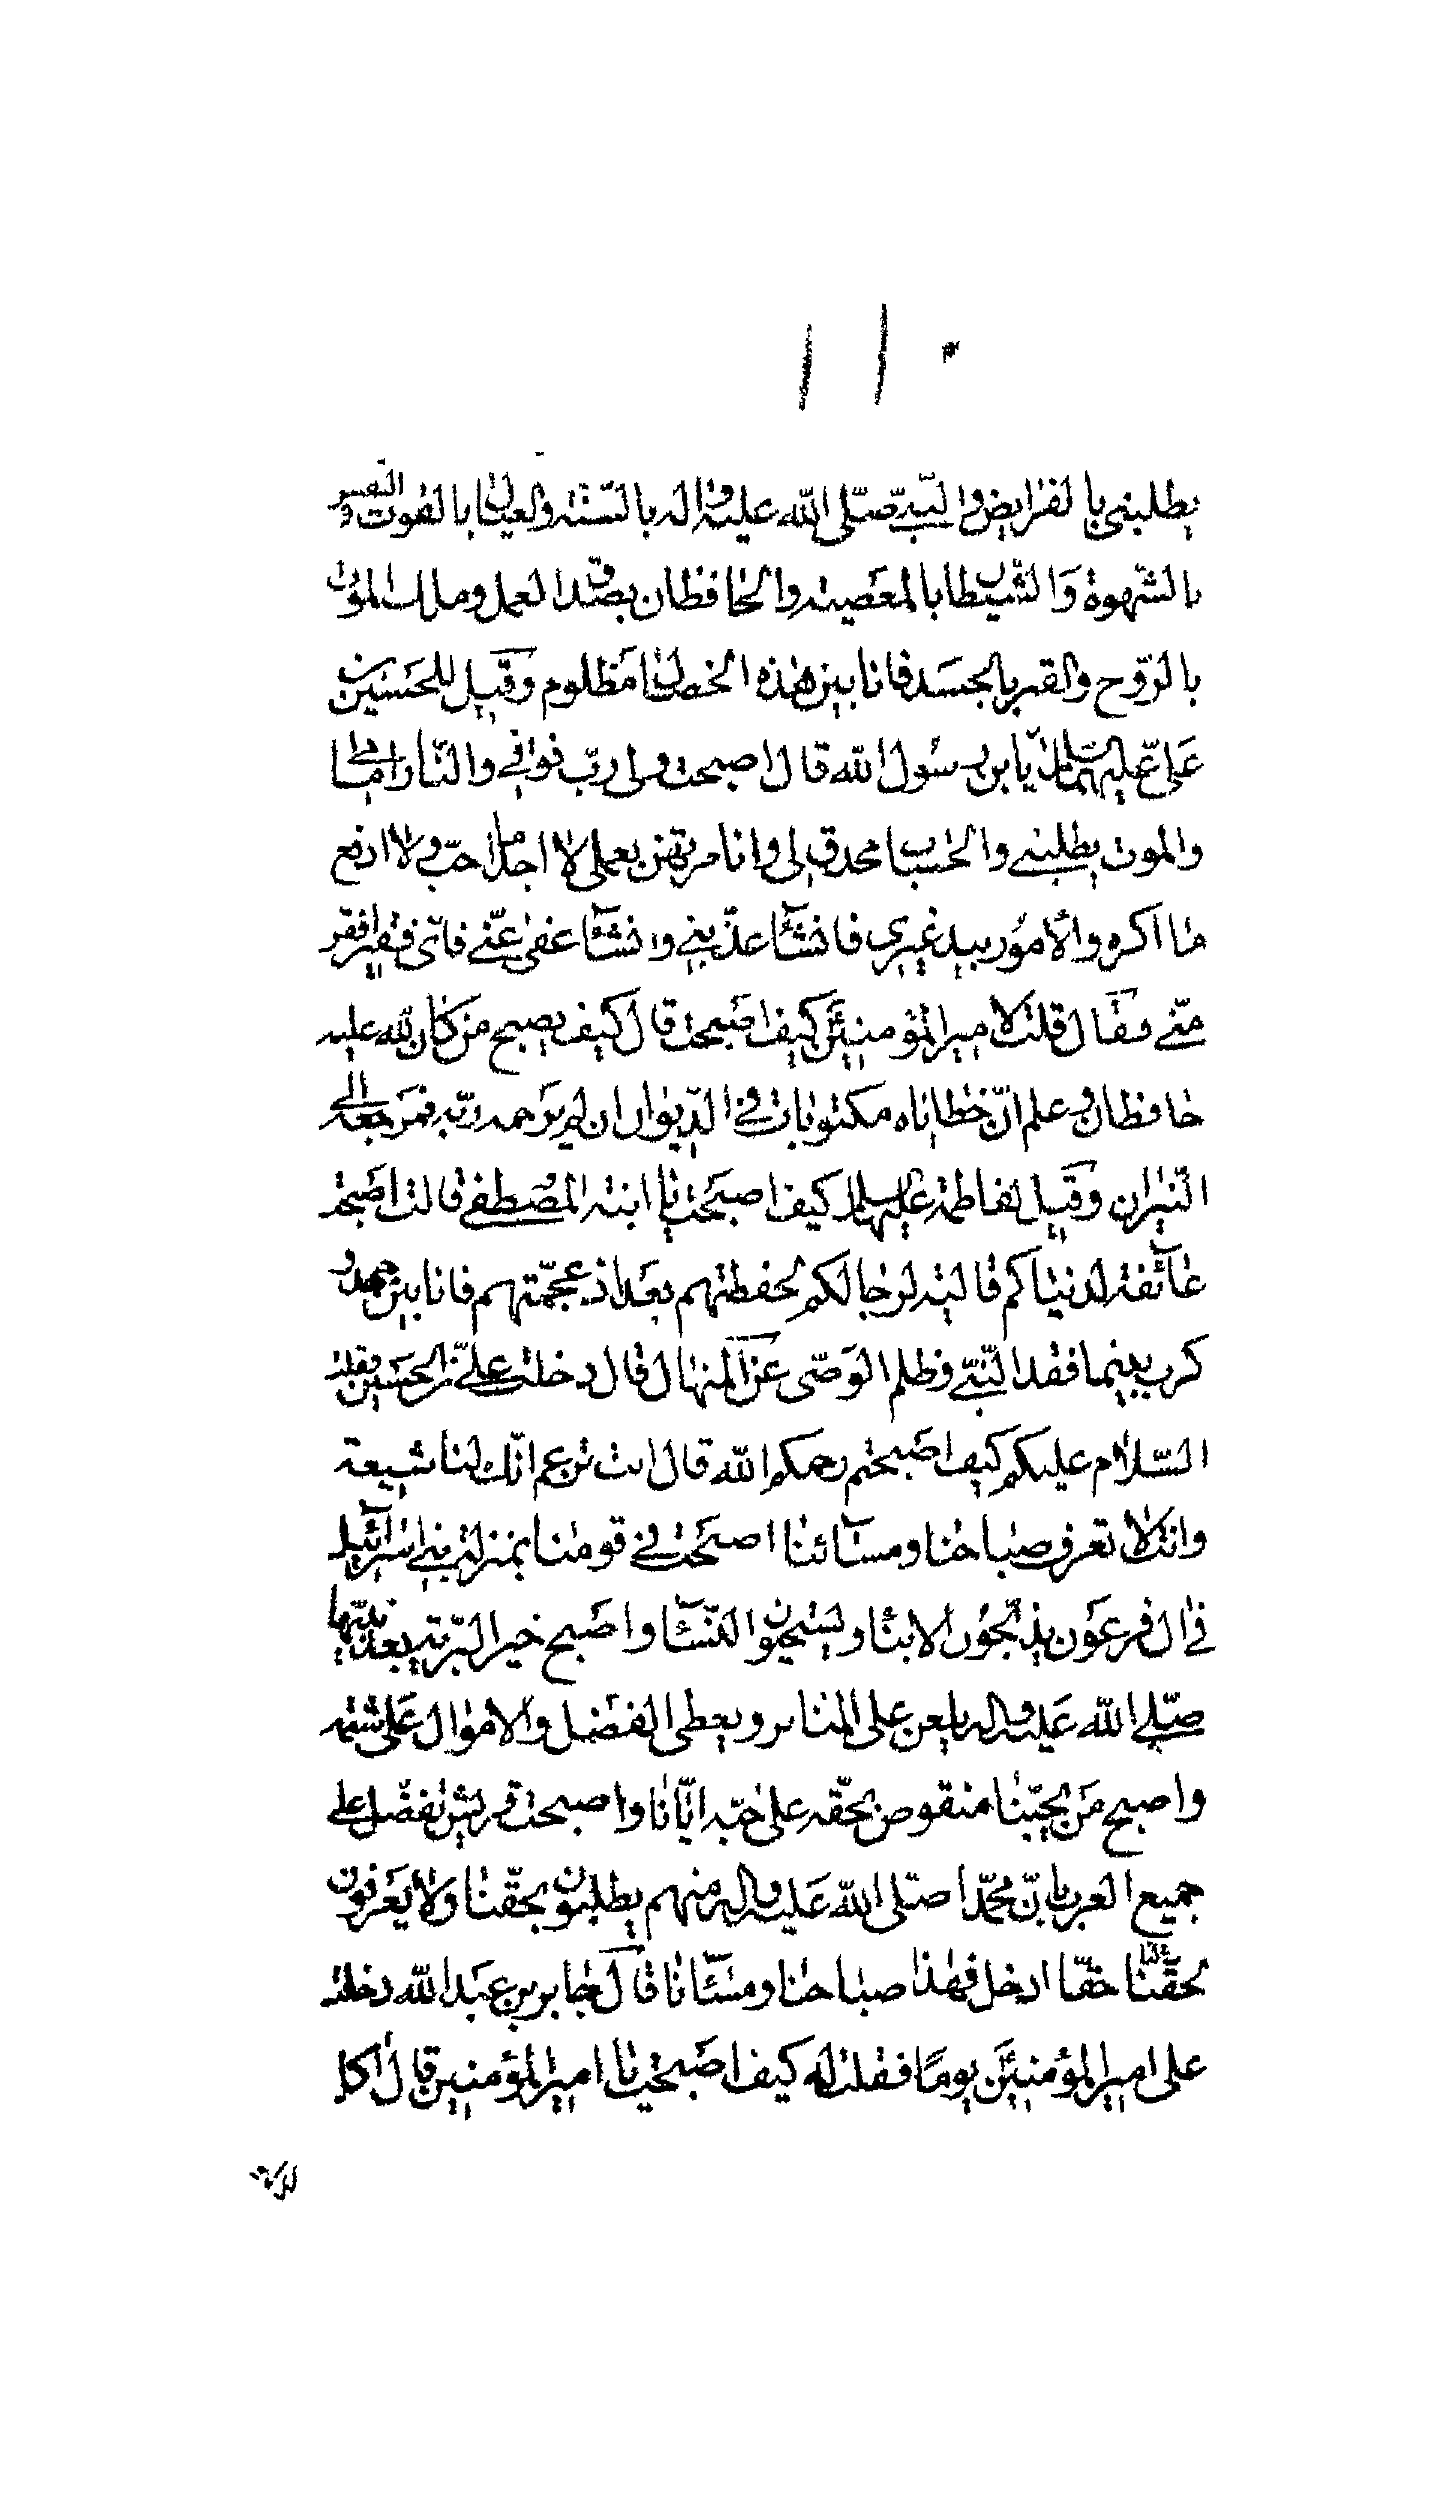 ١١٠
يطلبنى بالفرايض والنبىّ صلّى الله عليه واله بالسّنّة والعيال بالقوت والنفس
بالشّهوة وَالشّيطان بالمعَصية والحافظان بصدق العمل وملك الموت
بالرّوح والقبر بالجسَد فانا بين هذه الخصال مَظلوم وَقيل للحسَين بن
عَلىّ عليهما السّلام كيف اصبحت يابن رسُول الله قال اصبحت ولى ربّ فوقى والنّار امامى
والموت يطلبنى والحساب محدق بى وانا مرتهن بعملى لا اجد ما احبّ ولا ادفع
ما اكره والأمُور بيد غيرى فان شآء عذّبنى وان شآء عفى عنّى فاىّ فقير افقر
منّى فقال قلت لامير المؤمنينَ كيف اصَبحت قال كيف يصبح مَن كان لله عليه
حافظان وعلم انّ خطاياه مكتوبات فى الدّيوان ان لم يرَحمه ربّه فمرَجعه الى
النّيران وَقيل لفاطمة عليها السلام كيف اصبَحت يا ابنة المُصطفى قالت اصَبحت
عآئفة لدنياكم قالية لرجالكم لفظتهم بعَد اذ عجمتهم فانا بين جهد و
كرب بينما فقد النّبىّ وظلم الوَصىّ عَن المنهال قال دخلت على علىّ بن الحسَين فقلت
السّلام عليكم كيف اصَبحتم رحمكم الله قال انت تزعم انّك لنا شيعة
وانت لا تعرف صباحنا ومسآئنا اصبَحنا فى قومنا بمنزلة بنى اسرآئيل
فى ال فرعَون يذبّحُون الابنآء ويستحيُون النّسآء واصَبح خير البريّة بعد نبيّها
صلّى الله عَليه واله يلعن على المنابر ويعطى الفضَل والاموال عَلى شتمه
واصبح مَن يحبّنا منقوص بحقّه على حبّه ايّانا واصبحت قريش تفضّل على
جميع العرب بانّ محمّدا صلّى الله عَليه واله منهم يطلبون بحقّنا ولا يعَرفون
لنا حقّا ادخل فهذا صباحنا ومسَآئنا قال جابر بن عبَد الله دخلت
على امير المؤمنينَ يومًا فقلت له كيف اصَبحت يا امير المؤمنين قال اكل